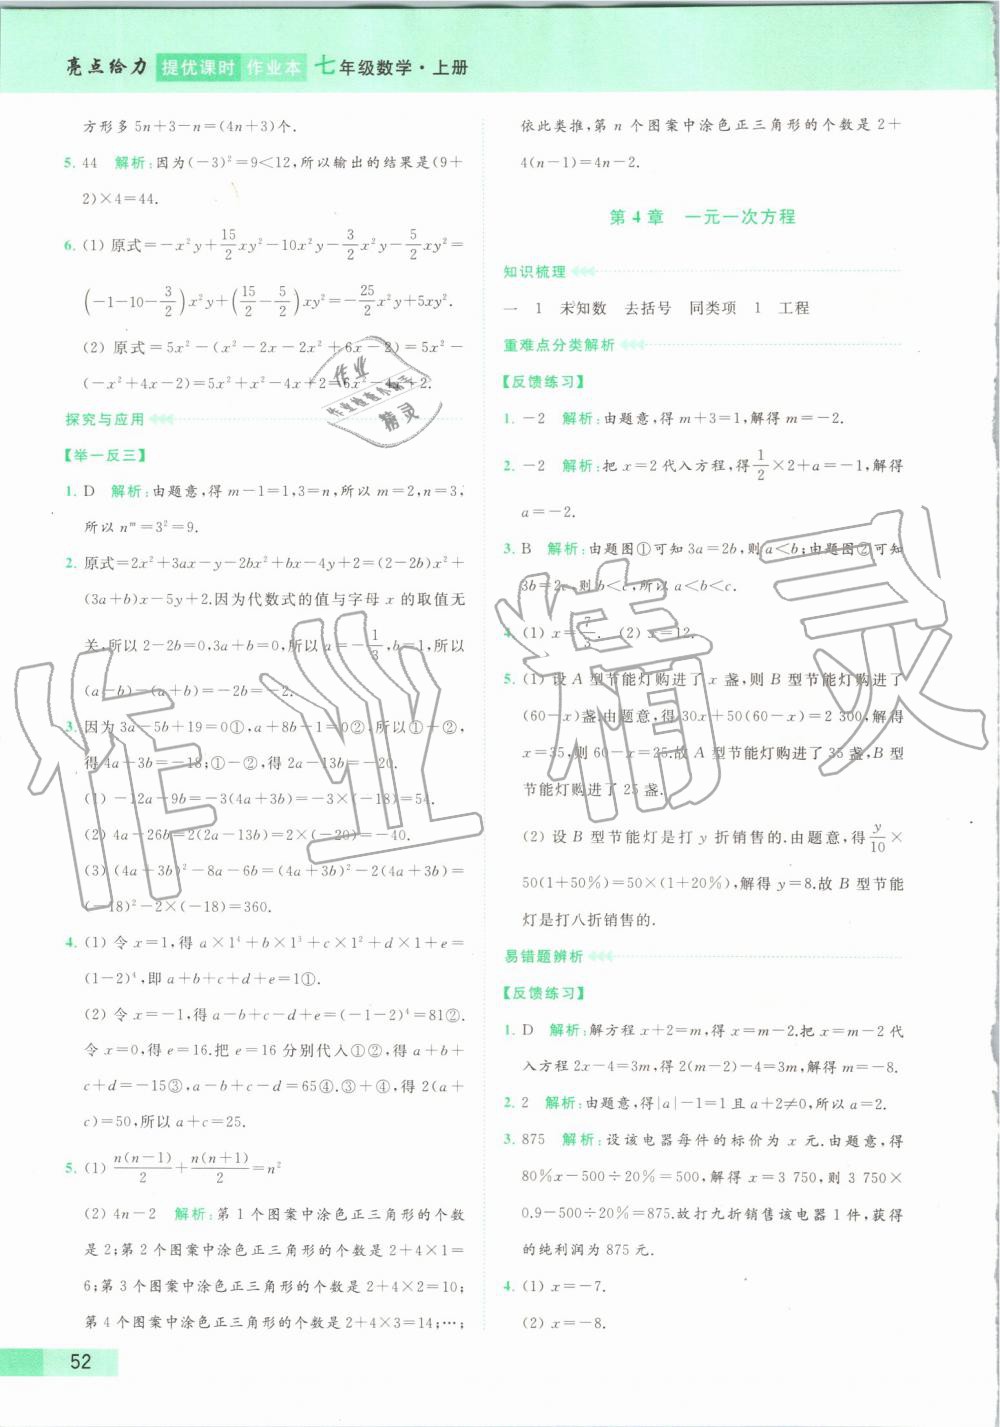 亮点给力 提优课时 作业本 七年级数学·上册
方形多5n+3-n=(4n+3)个.
5. 44 解析:因为(-3)²=9<12,所以输出的结果是(9+
2)×4=44.
6. (1) 原式=-x²y+15/2xy²-10x²y-3/2x²y-5/2xy²=
(-1-10-3/2)x²y+(15/2-5/2)xy²=-25/2x²y+5xy².
(2) 原式=5x²-(x²-2x-2x²+6x-2)=5x²-
(-x²+4x-2)=5x²+x²-4x+2=6x²-4x+2.
探究与应用
【举一反三】
1. D 解析:由题意,得m-1=1,3=n,所以m=2,n=3,
所以nᵐ=3²=9.
2. 原式=2x²+3ax-y-2bx²+bx-4y+2=(2-2b)x²+
(3a+b)x-5y+2.因为代数式的值与字母x的取值无
关,所以2-2b=0,3a+b=0,所以a=-1/3,b=1,所以
(a-b)-(a+b)=-2b=-2.
3. 因为3a-5b+19=0①,a+8b-1=0②,所以①+②,
得4a+3b=-18;①-②,得2a-13b=-20.
(1) -12a-9b=-3(4a+3b)=-3×(-18)=54.
(2) 4a-26b=2(2a-13b)=2×(-20)=-40.
(3) (4a+3b)²-8a-6b=(4a+3b)²-2(4a+3b)=
(-18)²-2×(-18)=360.
4. (1) 令x=1,得a×1⁴+b×1³+c×1²+d×1+e=
(1-2)⁴,即a+b+c+d+e=1①.
(2) 令x=-1,得a-b+c-d+e=(-1-2)⁴=81②.
令x=0,得e=16.把e=16分别代入①②,得a+b+
c+d=-15③,a-b+c-d=65④.③+④,得2(a+
c)=50,所以a+c=25.
5. (1) n(n-1)/2+n(n+1)/2=n²
(2) 4n-2 解析:第1个图案中涂色正三角形的个数
是2;第2个图案中涂色正三角形的个数是2+4×1=
6;第3个图案中涂色正三角形的个数是2+4×2=10;
第4个图案中涂色正三角形的个数是2+4×3=14;…;
52
依此类推,第n个图案中涂色正三角形的个数是2+
4(n-1)=4n-2.
第4章 一元一次方程
知识梳理
一 1 未知数 去括号 同类项 1 工程
重难点分类解析
【反馈练习】
1. -2 解析:由题意,得m+3=1,解得m=-2.
2. -2 解析:把x=2代入方程,得1/2×2+a=-1,解得
a=-2.
3. B 解析:由题图①可知3a=2b,则a<b;由题图②可知
3b=2c,则b<c,所以a<b<c.
4. (1) x=7/3. (2) x=12.
5. (1) 设A型节能灯购进了x盏,则B型节能灯购进了
(60-x)盏.由题意,得30x+50(60-x)=2 300,解得
x=35,则60-x=25.故A型节能灯购进了35盏,B型
节能灯购进了25盏.
(2) 设B型节能灯是打y折销售的.由题意,得y/10×
50(1+50%)=50×(1+20%),解得y=8.故B型节能
灯是打八折销售的.
易错题辨析
【反馈练习】
1. D 解析:解方程x+2=m,得x=m-2.把x=m-2代
入方程2x-4=3m,得2(m-2)-4=3m,解得m=-8.
2. 2 解析:由题意,得|a|-1=1且a+2≠0,所以a=2.
3. 875 解析:设该电器每件的标价为x元.由题意,得
80%x-500÷20%=500,解得x=3 750,则3 750×
0.9-500÷20%=875.故打九折销售该电器1件,获得
的纯利润为875元.
4. (1) x=-7.
(2) x=-8.
作业精灵